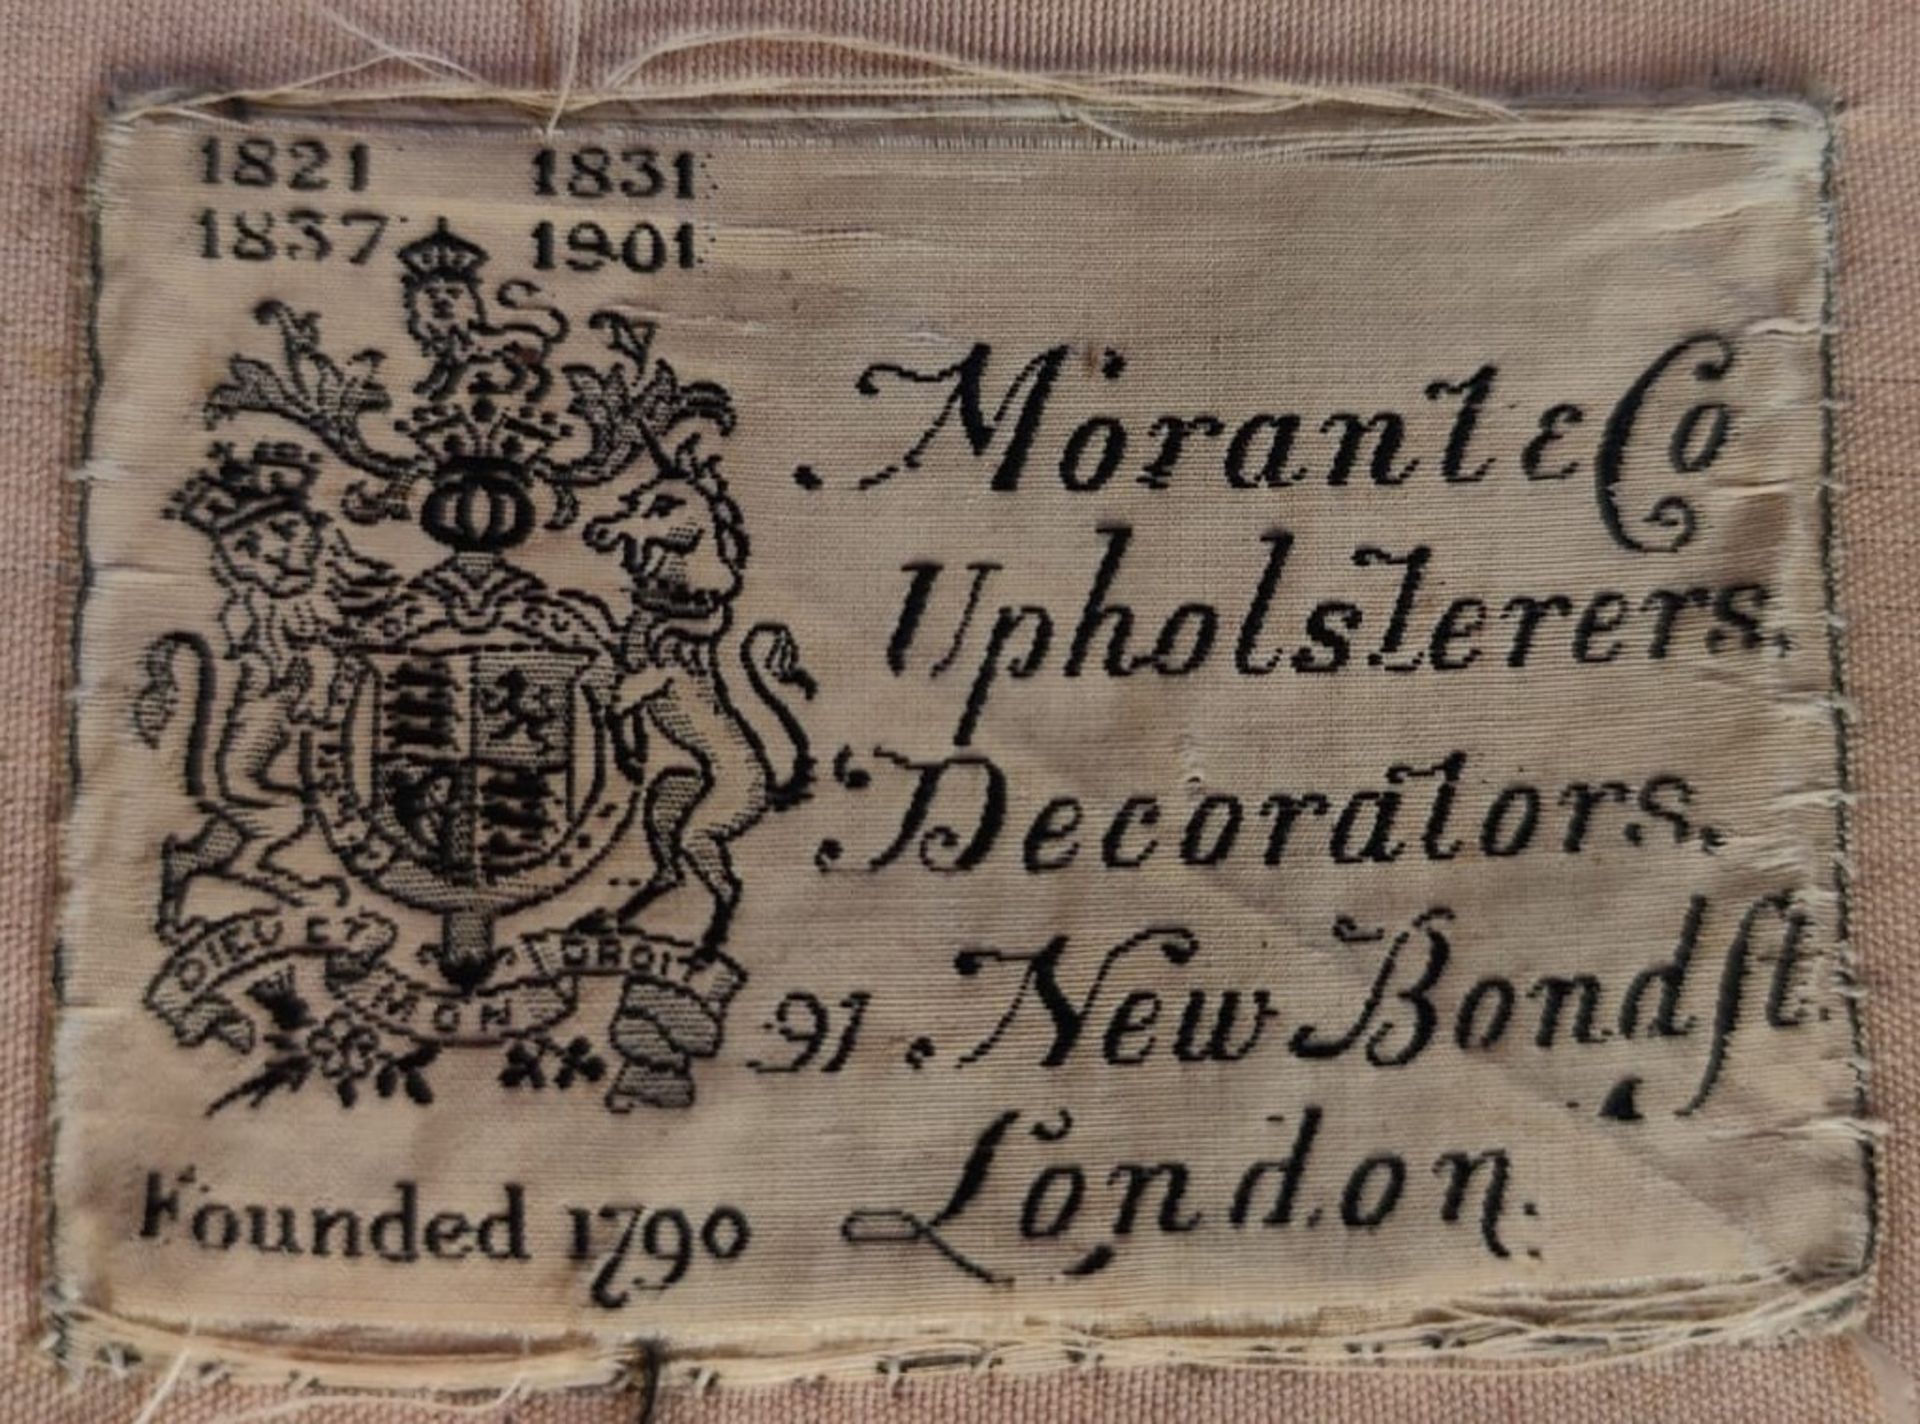 1821 1831
1837 1901
Morant & Co
Upholsterers.
Decorators.
91 New Bond St.
London.
DIEU ET MON DROIT
Founded 1790